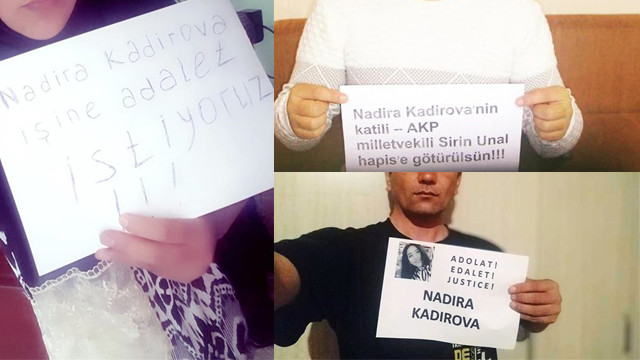 Nadira Kadirova
işine adalet
istiyoruz
!!!
Nadira Kadirova'nin
katili -- AKP
milletvekili Sirin Unal
hapis'e götürülsün!!!
ADOLAT!
EDALET!
JUSTICE!
NADIRA
KADIROVA